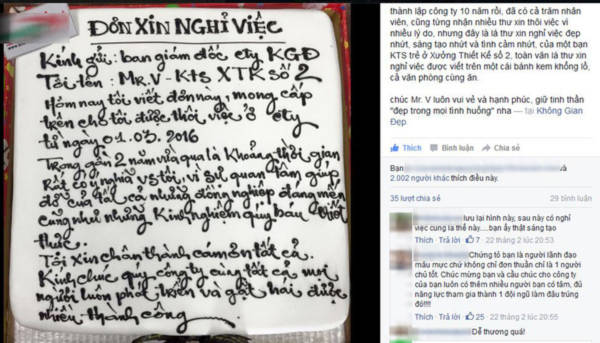 ĐƠN XIN NGHỈ VIỆC
Kính gửi: ban giám đốc cty KGĐ
Tôi tên: Mr.V - KTS XTK số 2
Hôm nay tôi viết đơn này, mong cấp
trên cho tôi được thôi việc ở cty
từ ngày 01.03.2016
Trong gần 2 năm vừa qua là khoảng thời gian
Rất có ý nghĩa với tôi, vì sự quan tâm giúp
đỡ của tất cả những đồng nghiệp đáng mến
cũng như những kinh nghiệm quý báu
thức.
Tôi xin chân thành cám ơn tất cả.
Kính chúc quý công ty cùng tất cả mọi
người luôn phát triển và gặt hái được
nhiều thành công
thành lập công ty 10 năm rồi, đã có cả trăm nhân
viên, cũng từng nhận nhiều thư xin thôi việc vì
nhiều lý do, nhưng đây là lá thư xin nghỉ việc đẹp
nhứt, sáng tạo nhứt và tình cảm nhứt, của một bạn
KTS trẻ ở Xưởng Thiết Kế số 2, toàn văn lá thư xin
nghỉ việc được viết trên một cái bánh kem khổng lồ,
cả văn phòng cùng ăn.
chúc Mr. V luôn vui vẻ và hạnh phúc, giữ tinh thần
"đẹp trong mọi tình huống" nha — tại Không Gian
Đẹp.
Thích Bình luận Chia sẻ
Bạn và
2.002 người khác thích điều này.
35 lượt chia sẻ 29 bình luận
lưu lại hình này, sau này có nghỉ
việc cung la thế này....bạn ấy thật sáng tạo
Thích · Trả lời · 7 · 22 tháng 2 lúc 20:53
Chứng tỏ bạn là người lãnh đạo
mẫu mực chứ không chỉ đơn thuần chỉ là 1 người
chủ tốt. Chúc mừng bạn và cầu chúc cho công ty
của bạn luôn có thêm nhiều người bạn có tâm, đủ
năng lực tham gia thành 1 đội ngũ làm đâu trúng
đó!!!!
Thích · Trả lời · 25 · 22 tháng 2 lúc 20:55
Dễ thương quá!